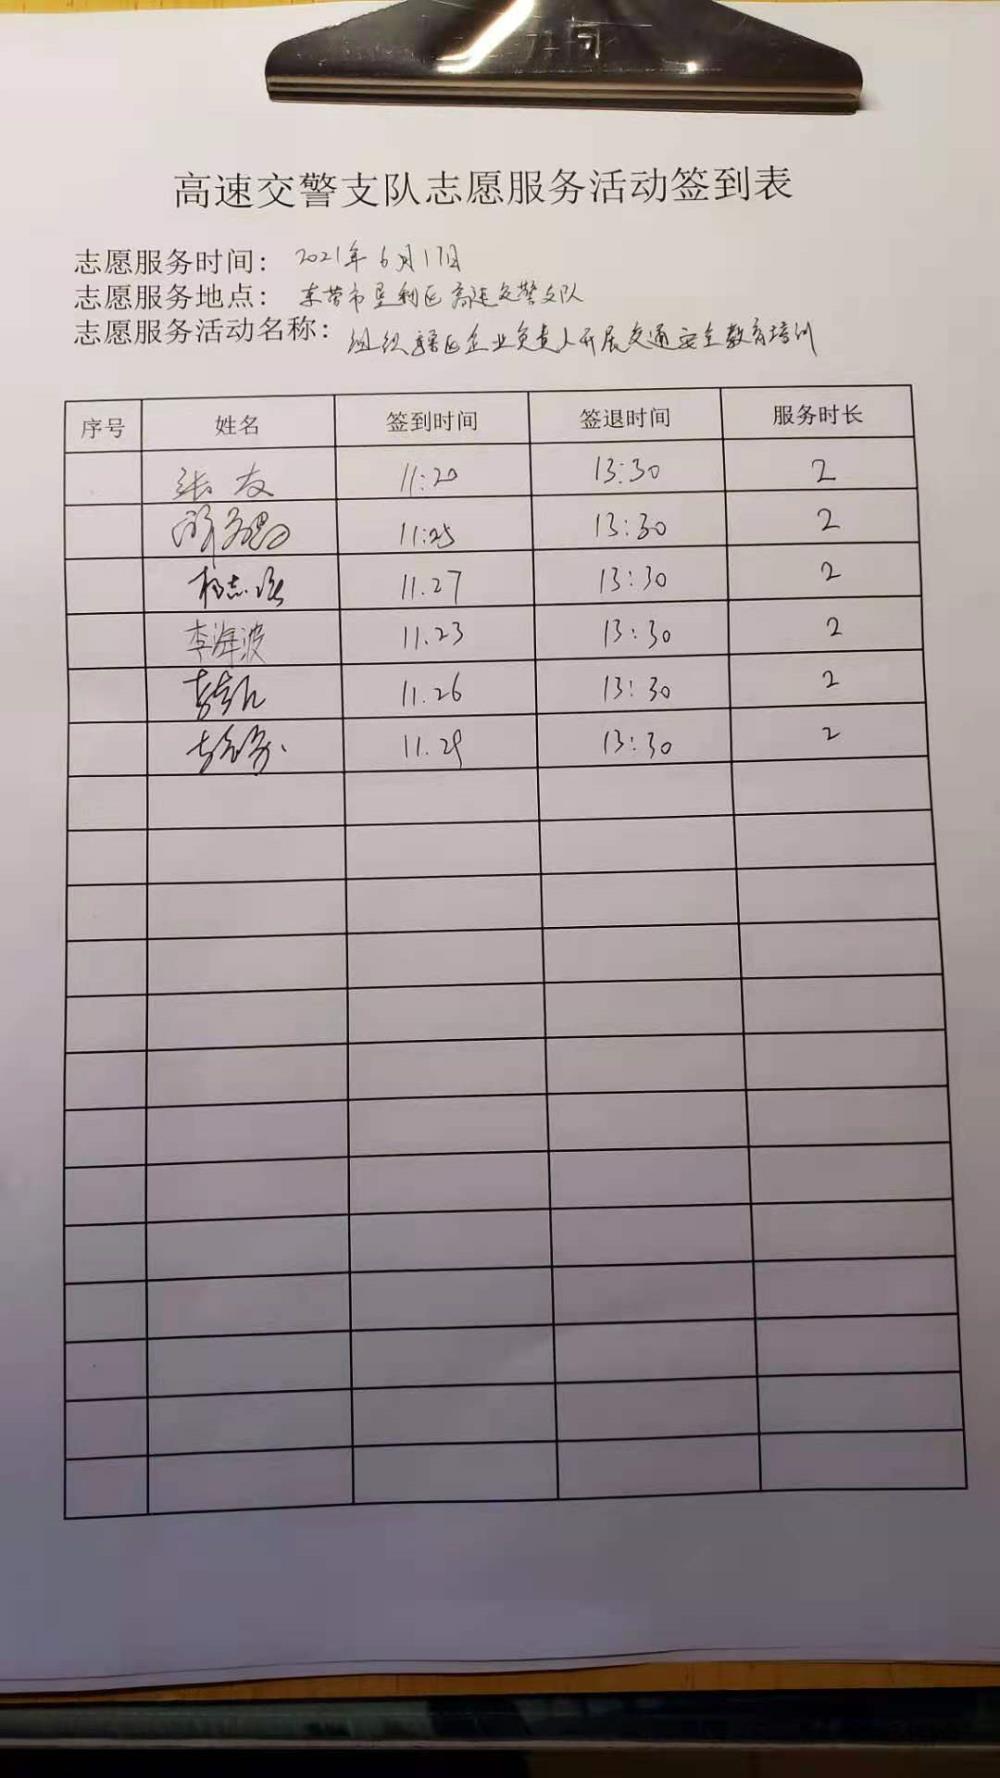 高速交警支队志愿服务活动签到表
志愿服务时间: 2021年6月17日
志愿服务地点: 东营市垦利区高速交警支队
志愿服务活动名称: 组织辖区企业负责人开展交通安全教育培训
序号 姓名 签到时间 签退时间 服务时长
张友 11:20 13:30 2
11:25 13:30 2
杨志强 11.27 13:30 2
李海波 11.23 13:30 2
11.26 13:30 2
11.29 13:30 2